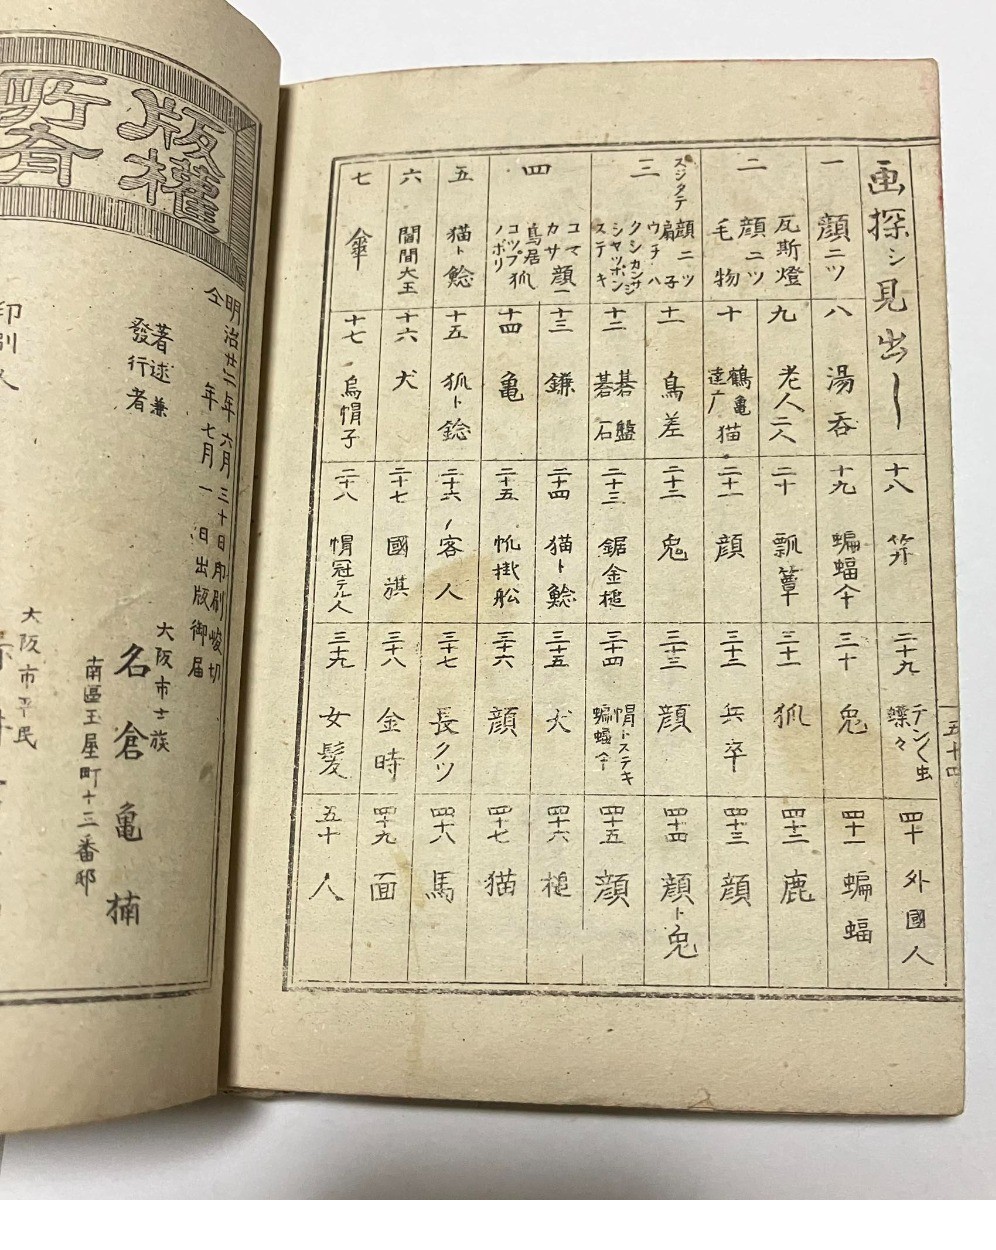 画探シ見出シ
一
顔ニツ
二
瓦斯燈
顔ニツ
毛物
三
スジタテ
顔ニツ
扇子
ウチハ
クシカンザシ
シヤツポン
ステキ
四
コマ
顔一
カサ
鳥居
狐
コツプ
ノボリ
五
猫ト鯰
六
閻閻大王
七
傘
八
湯呑
九
老人二人
十
鶴亀猫
達广
十一
鳥差
十二
碁盤
碁石
十三
鎌
十四
亀
十五
狐ト鯰
十六
犬
十七
烏帽子
十八
笄
十九
蝙蝠傘
二十
瓢簞
二十一
顔
二十二
兎
二十三
鋸金槌
二十四
猫ト鯰
二十五
帆掛舩
二十六
客人
二十七
國旗
二十八
帽冠テル人
二十九
テン〱虫
蝶々
三十
兎
三十一
狐
三十二
兵卒
三十三
顔
三十四
帽トステキ
蝙蝠傘
三十五
犬
三十六
顔
三十七
長クツ
三十八
金時
三十九
女髪
四十
外國人
四十一
蝙蝠
四十二
鹿
四十三
顔
四十四
顔ト兎
四十五
顔
四十六
槌
四十七
猫
四十八
馬
四十九
面
五十
人
五十四
版權
所有
明治廿二年六月三十日印刷
仝年七月一日出版御届
著述兼
發行者
大阪市士族
名倉亀楠
南區玉屋町十三番邸
印刷人
大阪市平民